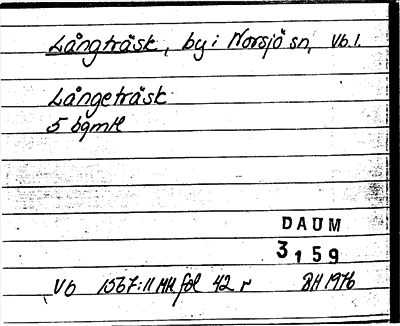 Långträsk, by i Norsjö sn, Vb. l.
Långeträsk
5 bgmtl
DAUM
3159
Vb 1567:11 MH fol 42 r BH 1976